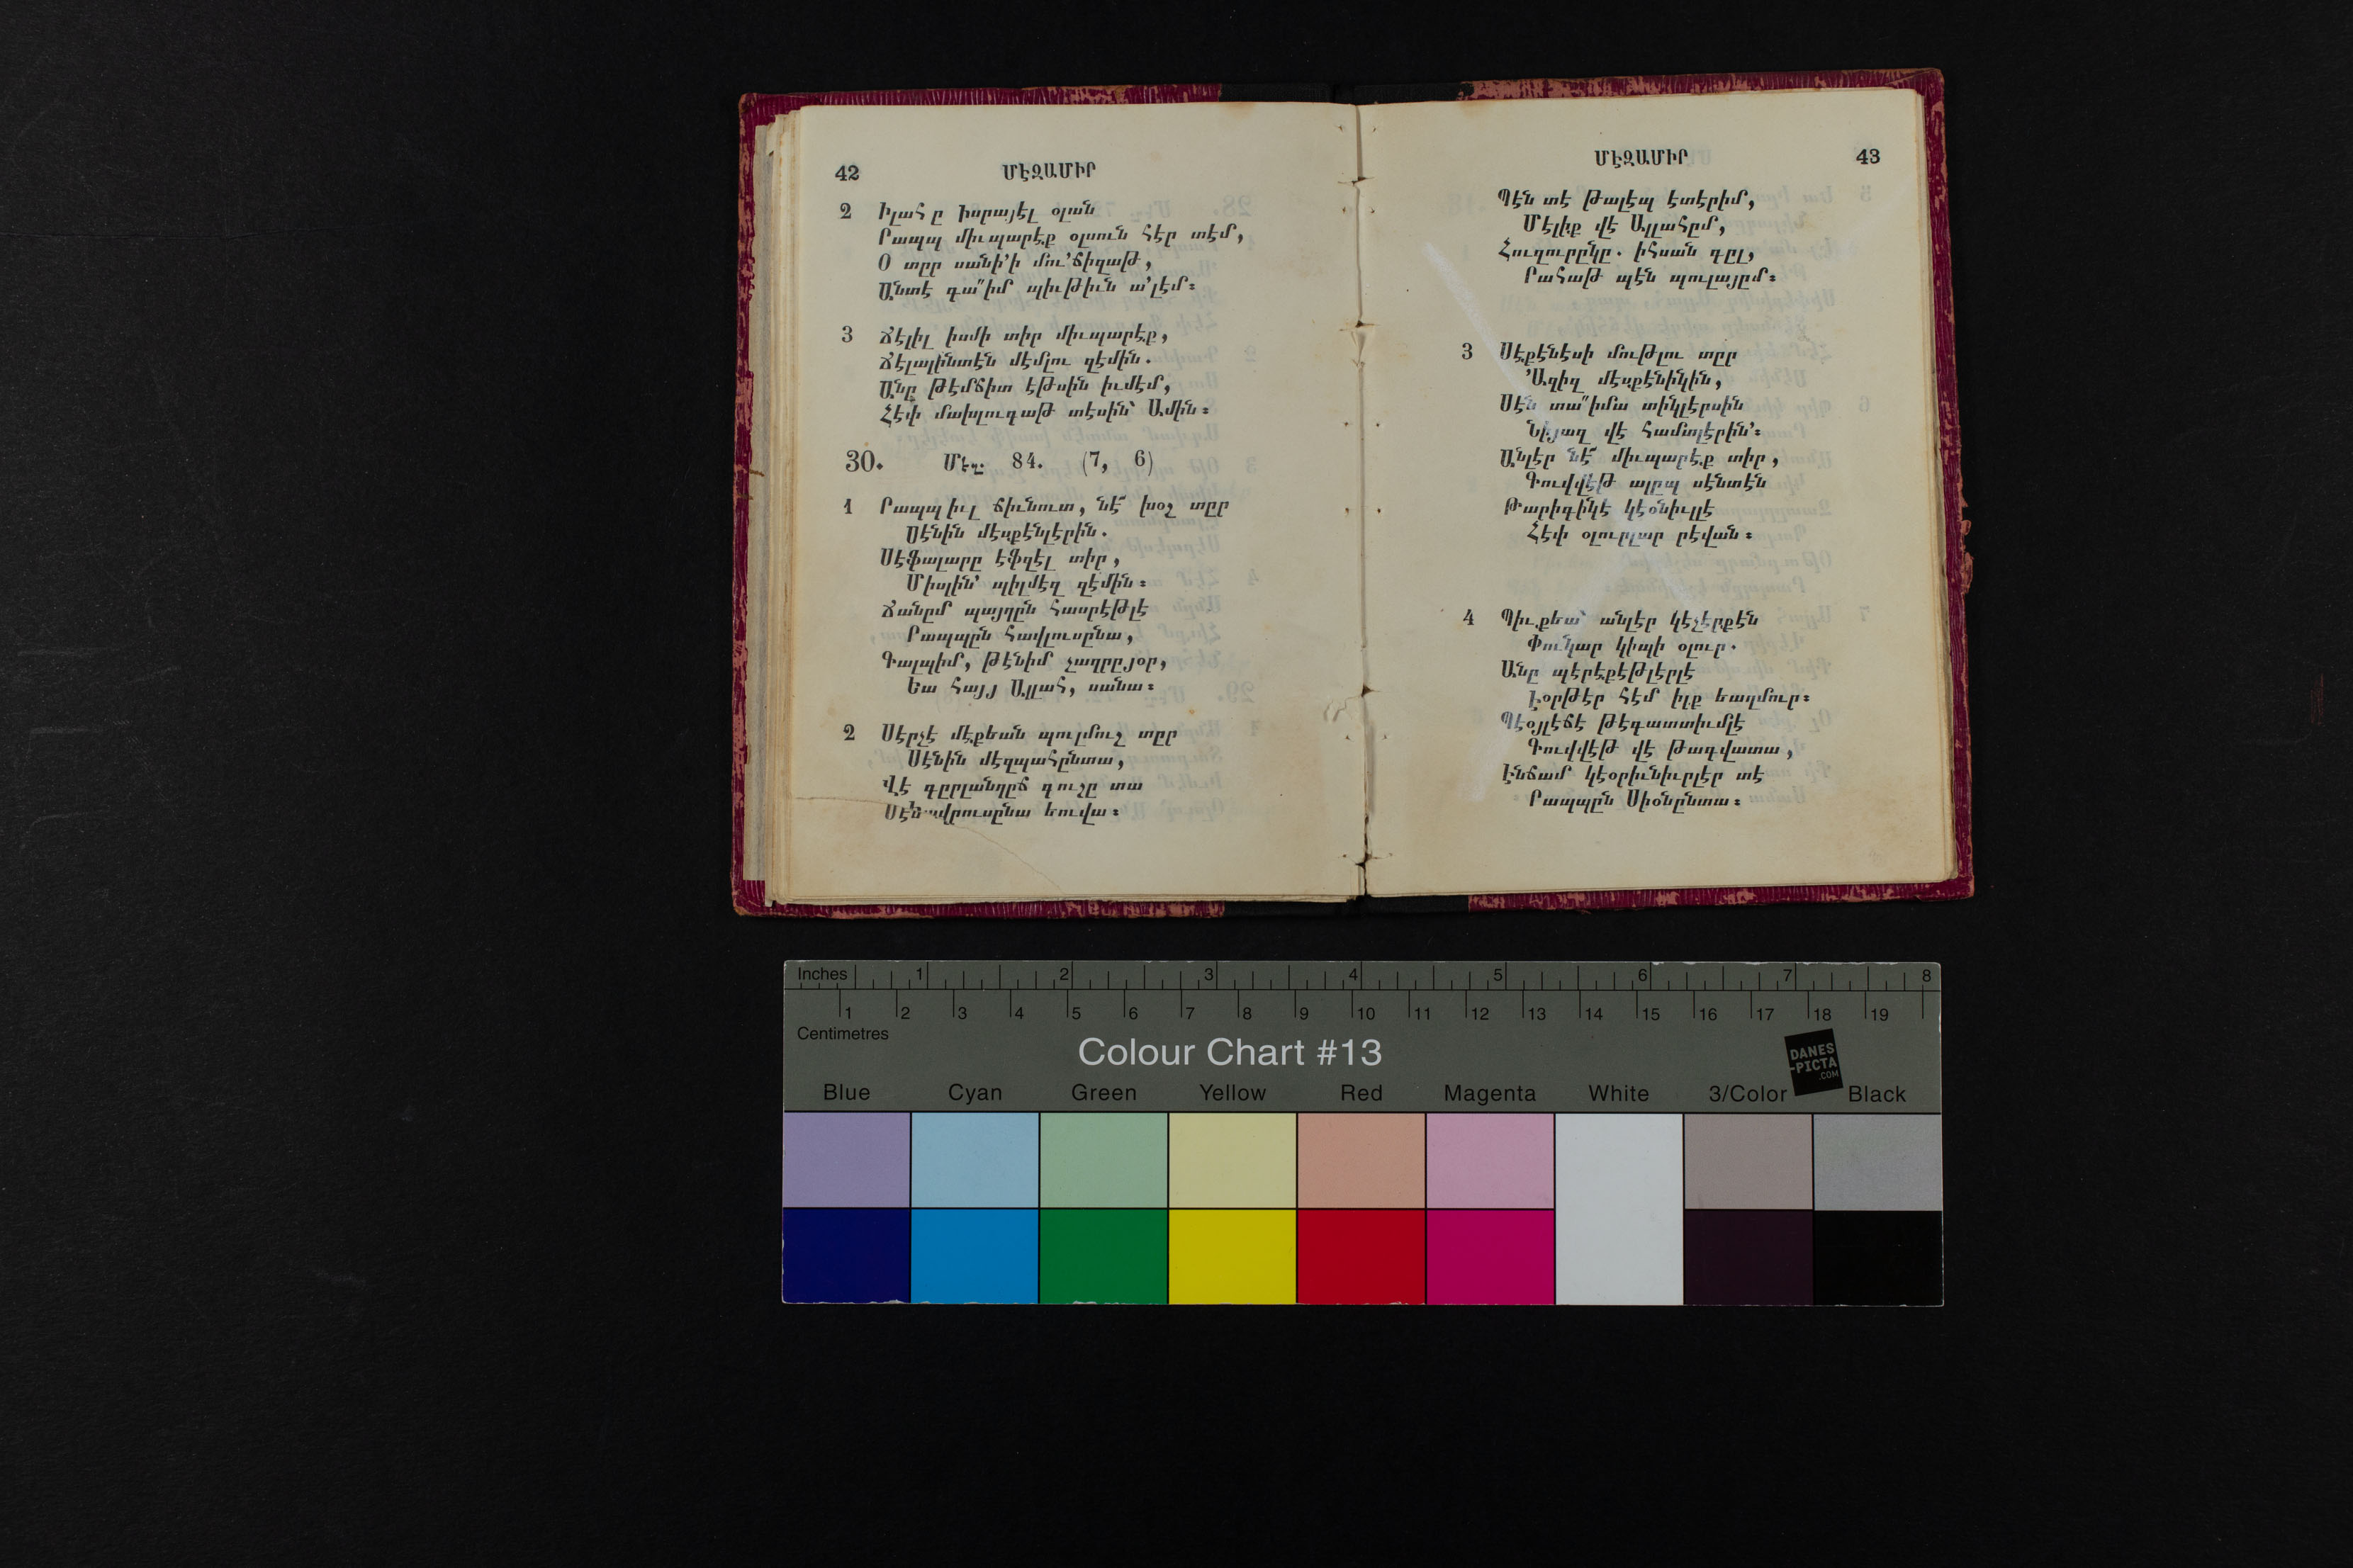 42 ՄԷԶԱՄԻՐ
2 Իլահ ը իսրայէլ օլան
Րապպ միւպարէք օլսուն հէր տէմ,
Օ տըր սանի՚ի մու՚ճիզաթ,
Անտէ դա՛՛իմ պիւթիւն ա՚լէմ։
3 Ճէլիլ իսմի տիր միւպարէք,
Ճէլալինտէն մէմլու զէմին.
Անը թէմճիտ էթսին իւմէմ,
Հէփ մախլուգաթ տէսին՝ Ամին։
30. Մէզ. 84. (7, 6)
1 Րապպ իւլ ճիւնուտ, նէ՛ խօշ տըր
Սէնին մէսքէնլէրին.
Սէֆալարը էֆզէլ տիր,
Միսլին՚ պիլմէզ զէմին։
Ճանըմ պայղըն հասրէթլէ
Րապպըն հավլուսընա,
Գալպիմ, թէնիմ չաղըրյօր,
Եա հայյ Ալլահ, սանա։
2 Սէրչէ մէքեան պուլմուշ տըր
Սէնին մէզպահընտա,
Վէ գըրլանղըճ գուշը տա
եուվա։
ՄԷԶԱՄԻՐ 43
Պէն տէ թալէպ էտէրիմ,
Մէլիք վէ Ալլահըմ,
Հուզուրընը. իհսան գըլ,
Րահաթ պէն պուլայըմ։
3 Սէքէնէսի մութլու տըր
՚Ազիզ մէսքէնինին,
Սէն տա՛՛իմա տինլէրսին
Նիյազ վէ համտլէրին՚։
Անլէր նէ՛ միւպարէք տիր,
Գուվվէթ ալըպ սէնտէն
Թարիգինէ կէօնիւլլէ
Հէփ օլուրլար րէվան։
4 Պիւքեա՝ անլէր կէչէրքէն
Փունար կիպի օլուր.
Անը պէրէքէթլէրլէ
Էօրթէր հէմ իլք եաղմուր։
Պէօյլէճէ թէգատտիւմլէ
Գուվվէթ վէ թագվատա,
Էնճամ կէօրիւնիւրլէր տէ
Րապպըն Սիօնընտա։
Inches 1 2 3 4 5 6 7 8
1 2 3 4 5 6 7 8 9 10 11 12 13 14 15 16 17 18 19
Centimetres
Colour Chart #13
DANES
-PICTA
.COM
Blue Cyan Green Yellow Red Magenta White 3/Color Black